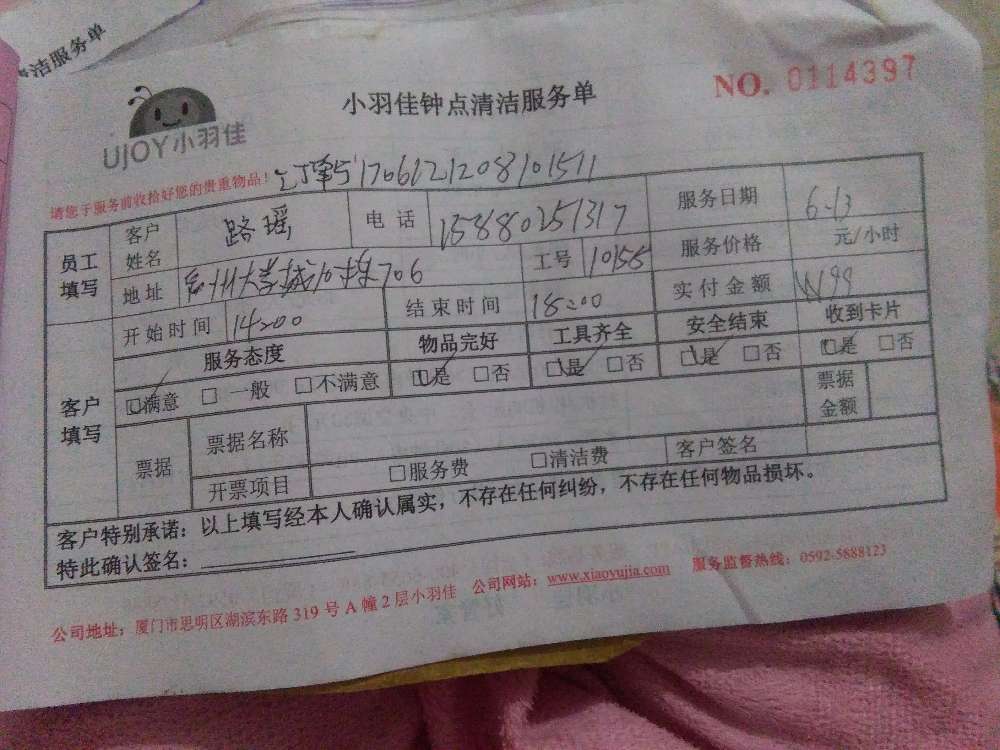 洁服务单
UJOY小羽佳
小羽佳钟点清洁服务单
NO. 0114397
请您于服务前收拾好您的贵重物品!
1706121208101511
员工填写
客户姓名 路瑶 电话 15880251317 服务日期 6-13
地址 大学城10栋706 工号 10155 服务价格 元/小时
开始时间 14:00 结束时间 18:00 实付金额 199
客户填写
服务态度 物品完好 工具齐全 安全结束 收到卡片
□满意 □一般 □不满意 □是 □否 □是 □否 □是 □否 □是 □否
票据 票据名称 票据金额
开票项目 □服务费 □清洁费 客户签名
客户特别承诺:以上填写经本人确认属实,不存在任何纠纷,不存在任何物品损坏。
特此确认签名:
公司地址:厦门市思明区湖滨东路319号A幢2层小羽佳 公司网站:www.xiaoyujia.com 服务监督热线:0592-5888123